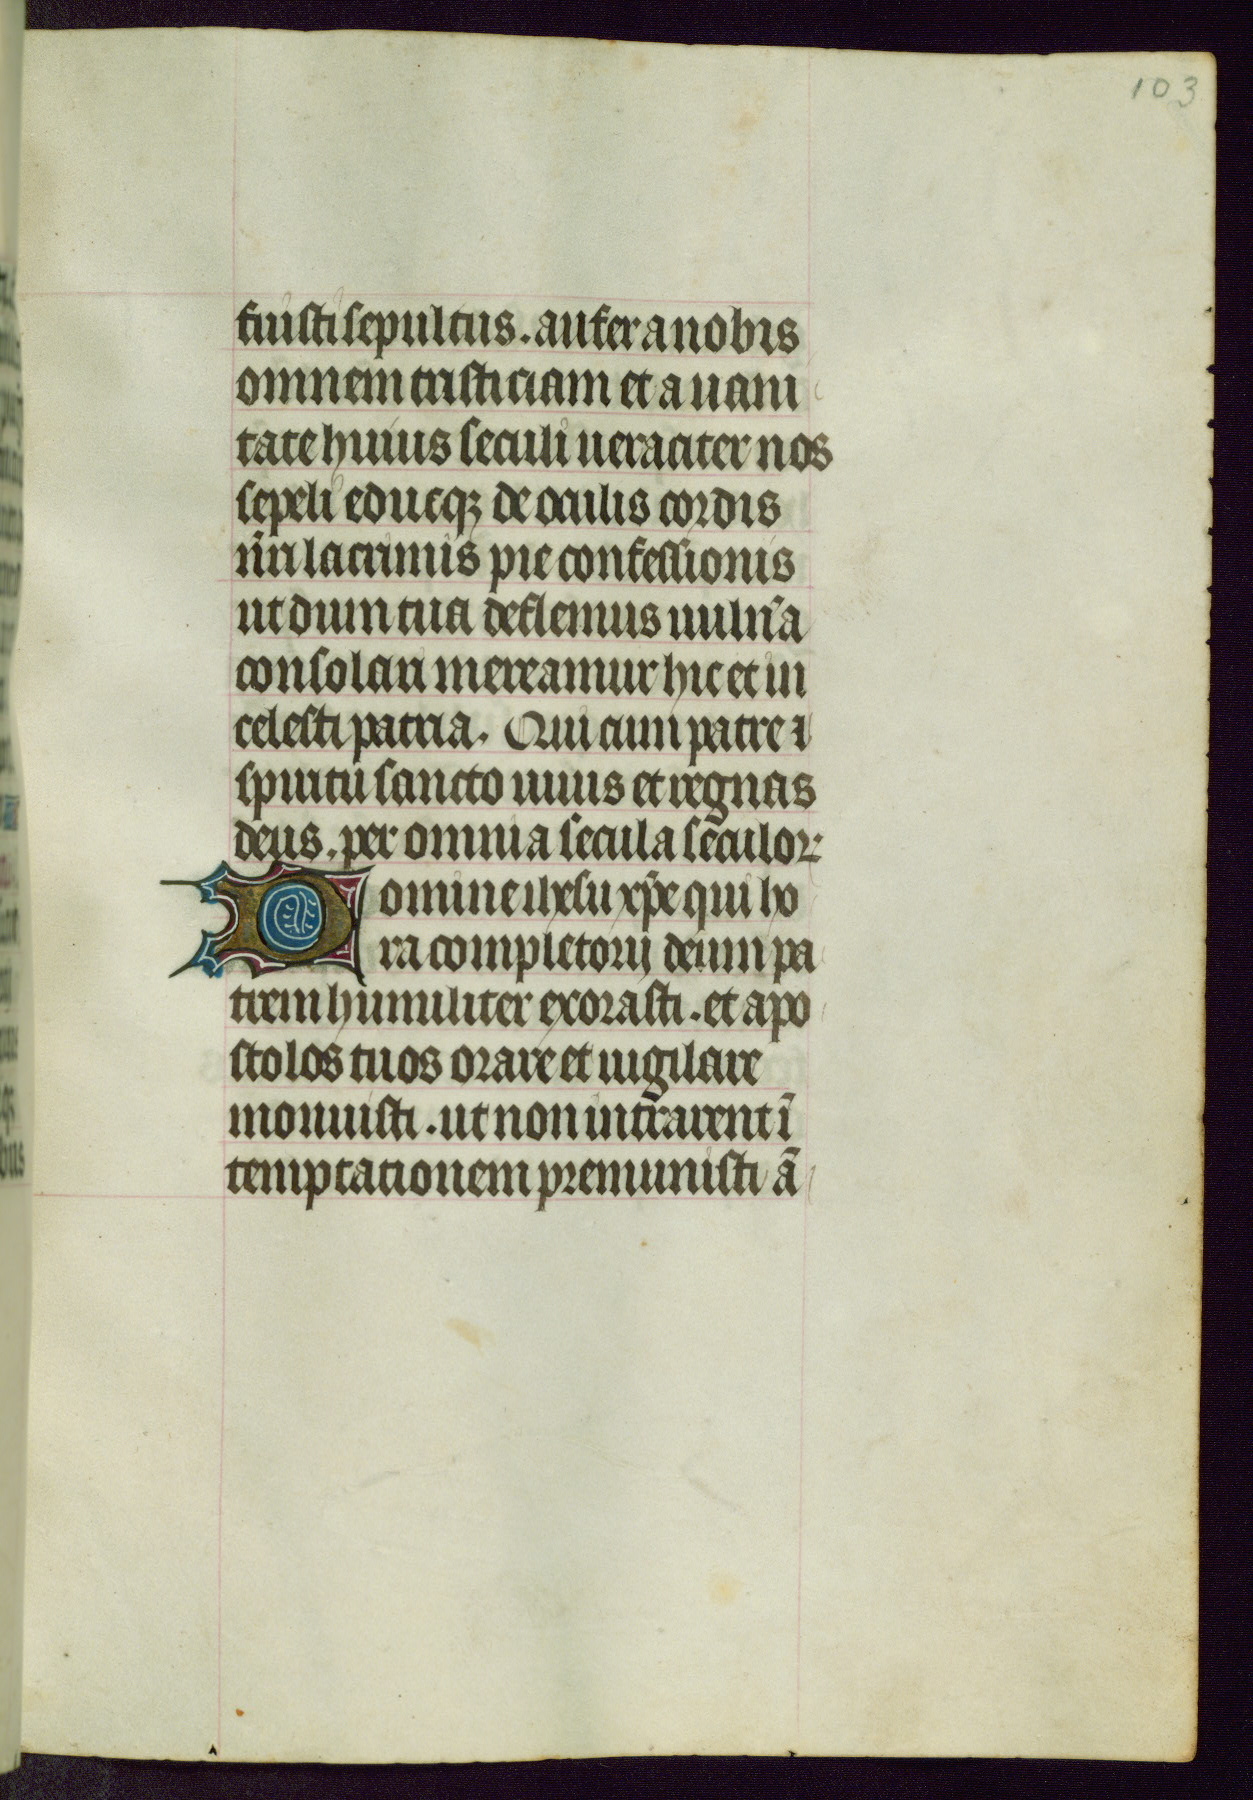 103
fuisti sepultus. aufer a nobis
omnem tristiciam et a uani
tate huius seculi ueraciter nos
sepeli educqꝫ de oculis cordis
nr̄i lacrimis pie confessionis
ut dum tua deflemus uuln̄a
consolari mereamur hic et in
celesti patria. Qui cum patre ⁊
spiritū sancto uiuis et regnas
deus. per omnia secula sēculoꝝ
Domine ihesu xp̄e qui ho
ra completorij deum pa
trem humiliter exorasti. et apo
stolos tuos orare et uigilare
monuisti. ut non intrārent ī
temptationem premunisti ā